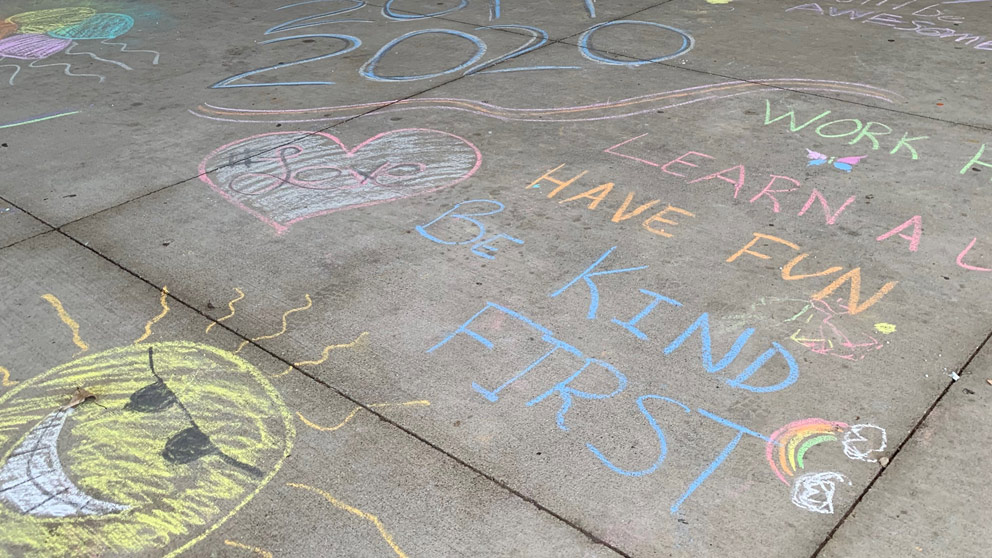 2020
AWESOME
WORK H
Love
LEARN A L
HAVE FUN
BE KIND
FIRST